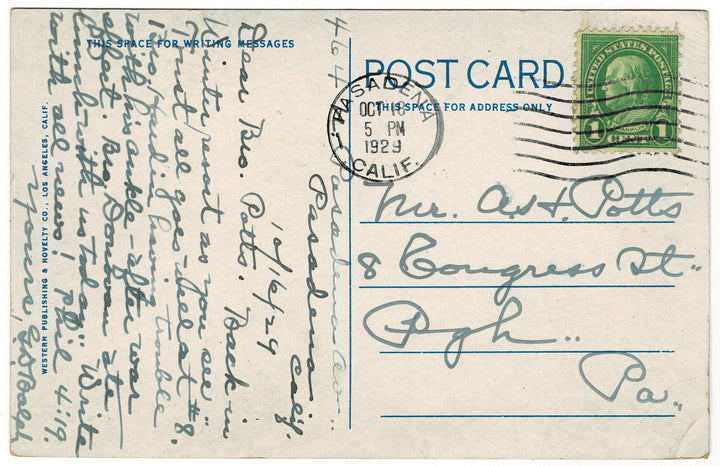 THIS SPACE FOR WRITING MESSAGES
POST CARD
THIS SPACE FOR ADDRESS ONLY
WESTERN PUBLISHING & NOVELTY CO., LOS ANGELES, CALIF.
UNITED STATES POSTAGE
FRANKLIN
1 CENT 1
PASADENA
OCT 16
5 PM
1929
CALIF.
464 Pasadena Av.
Pasadena
Calif.
10/16/29
Dear Bro. Potts. Back in
Winter resort as you see.
Trust all goes well at #8.
Bro. having trouble
with his ankle - after war
effect. Bro Donovan ate
lunch with us today. Write
with all news! Phil 4:19.
Yours,
Mr. A. S. Potts
8 Congress St.
Pgh.
Pa.